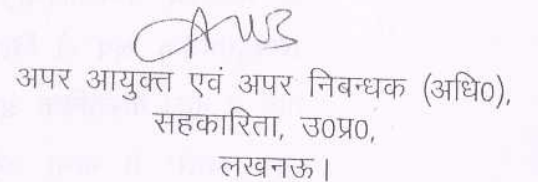 अपर आयुक्त एवं अपर निबन्धक (अधि0),
सहकारिता, उ0प्र0,
लखनऊ।